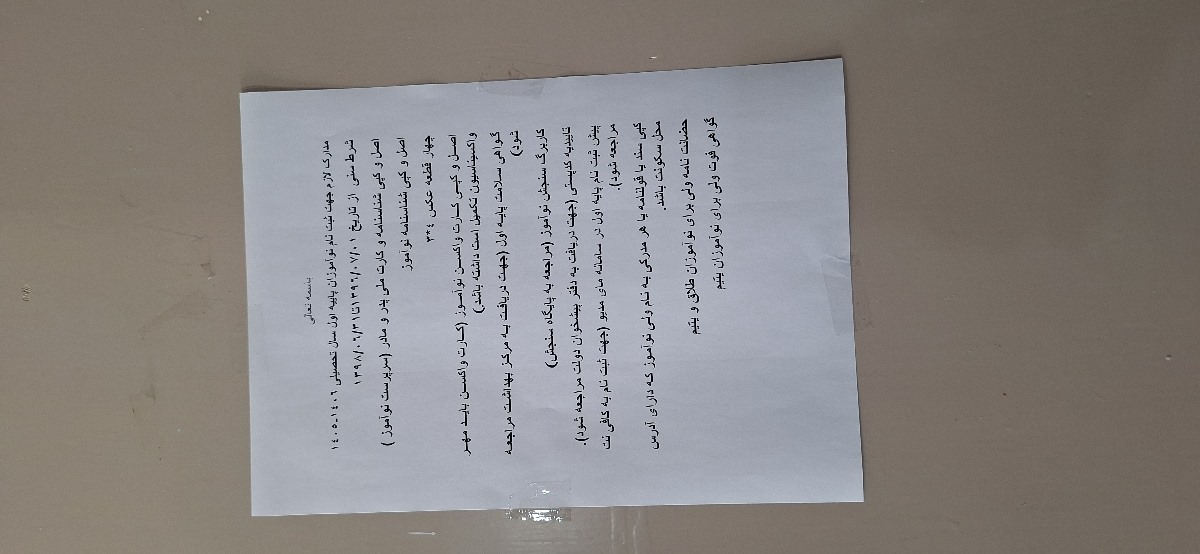 باسمه تعالی
مدارک لازم جهت ثبت نام نوآموزان پایه اول سال تحصیلی ۱۴۰۶-۱۴۰۵
شرط سنی از تاریخ ۱۳۹۶/۰۷/۰۱تا۱۳۹۸/۰۶/۳۱
اصل و کپی شناسنامه و کارت ملی پدر و مادر (سرپرست نوآموز )
اصل و کپی شناسنامه نوآموز
چهار قطعه عکس ۴*۳
اصل و کپی کارت واکسن نوآموز (کارت واکسن باید مهر
واکسیناسیون تکمیل است داشته باشد)
گواهی سلامت پایه اول (جهت دریافت به مرکز بهداشت مراجعه
شود)
کاربرگ سنجش نوآموز (مراجعه به پایگاه سنجش)
تاییدیه کدپستی (جهت دریافت به دفتر پیشخوان دولت مراجعه شود).
پیش ثبت نام پایه اول در سامانه مای مدیو (جهت ثبت نام به کافی نت
مراجعه شود).
کپی سند یا قولنامه یا هر مدرکی به نام ولی نوآموز که دارای آدرس
محل سکونت باشد.
حضانت نامه ولی برای نوآموزان طلاق و یتیم
گواهی فوت ولی برای نوآموزان یتیم